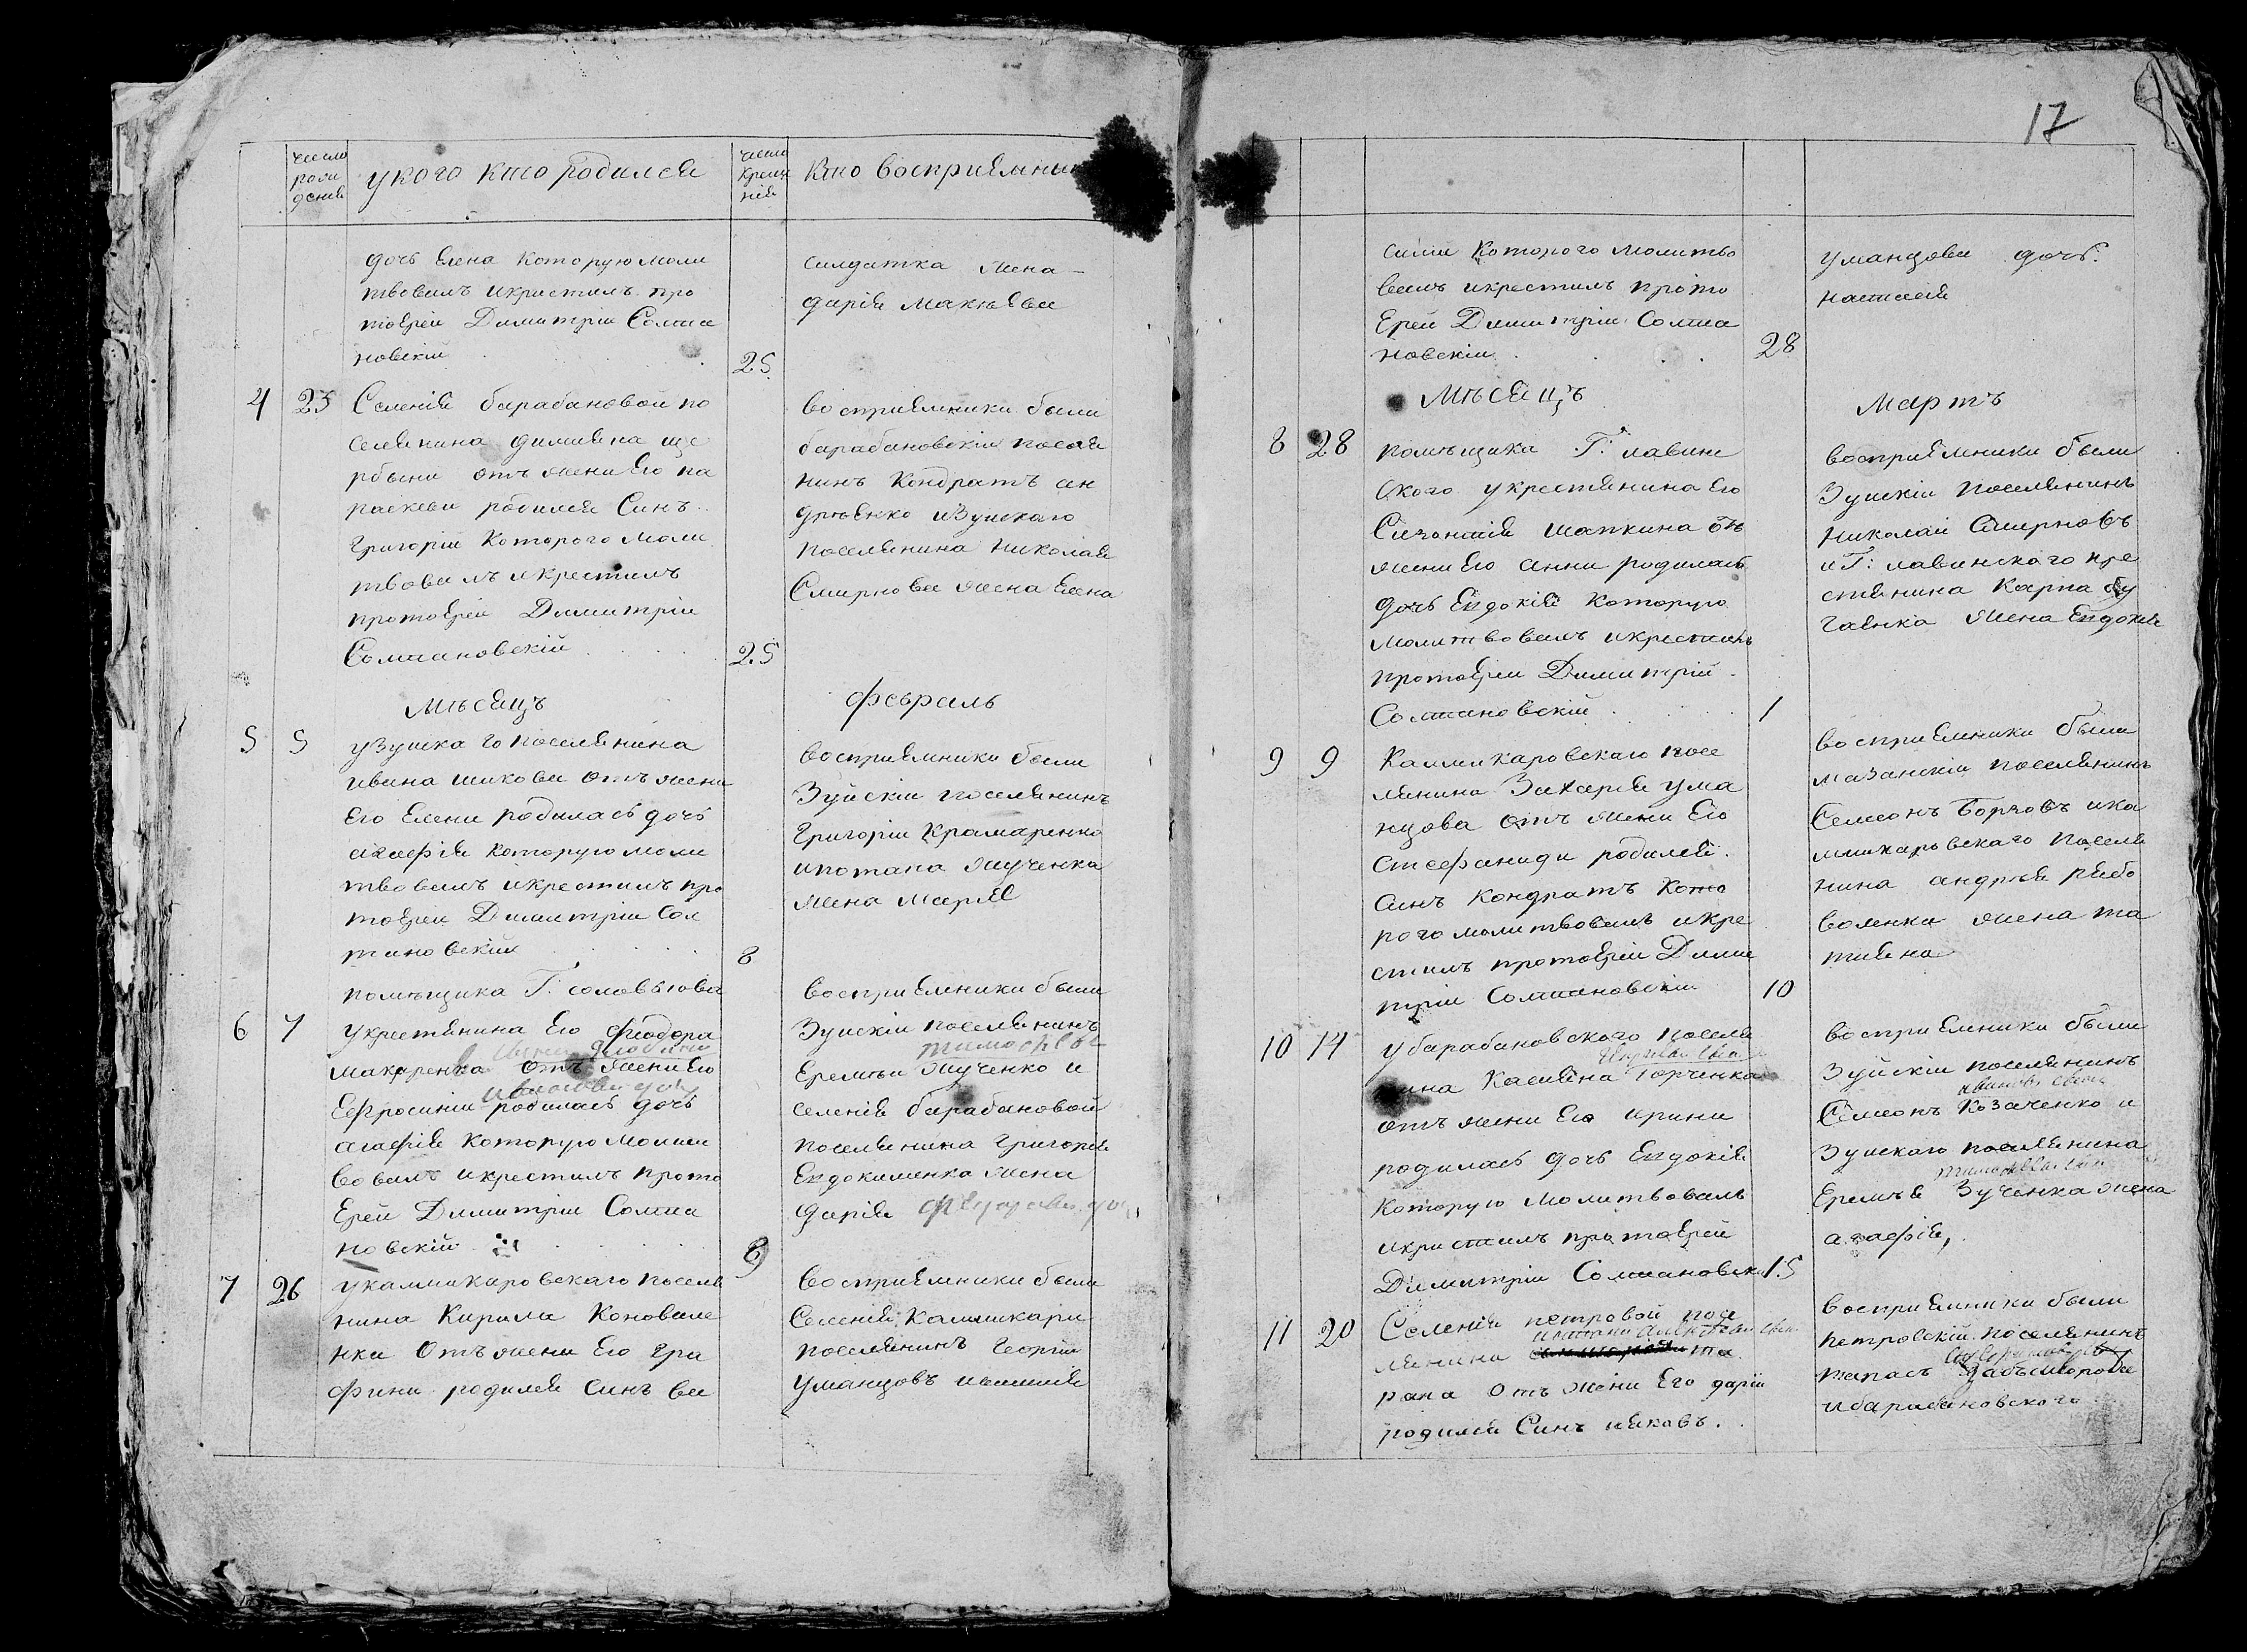 17
число рож дения
у кого кто родился
число креще нія
Кто восприемник
дочь Елена Которую моли
твовалъ икрестилъ про
тоерей Димитрій Солта
новскій
25
салдатка жена
дарія Макѣева
4 23 Селенія барабановой по
селянина димияна ще
рбини отъ жени Его па
раскеви родился Синъ
Григорій Которого моли
твовалъ икрестилъ
протоерей Димитрій
Солтановскій
25
восприемники были
барабановскій поселя
нинъ Кондратъ ан
дрѣенко иЗуйскаго
поселянина Николая
Смирнова жена Елена
Мѣсяцъ
Февраль
5 5 уЗуйскаго поселянина
ивана шикова отъ жени
Его Елени родилась дочь
агафія которую моли
твовалъ икрестилъ про
тоерей Димитрій Сол
тановскій
8
восприемники были
Зуйскій поселянинъ
Григорій Крамаренко
ипотапа жученка
жена Марія
помѣщика Г. соловьова
6 7 укрестянина Его Феодора
макаренка отъ жени Его
Ефросиніи родилась дочь
агафія которую молит
вовалъ икрестилъ прото
Ерей Димитрій Солта
новскій
8
восприемники были
Зуйскій поселянинъ
тимофѣевъ
Еремѣй жученко и
селенія барабановой
поселянина григорія
Евдокименка жена
дарія
7 26 укамышкаровскаго поселя
нина Кирила Коновале
нка отъ жени Его Гра
фини родился синъ ва
восприемники были
Селенія Камышкари
поселянинъ Георгій
Уманцовъ
силій Которого молитво
валъ икрестилъ прото
Ерей Димитрій Солта
новскій
28
уманцова дочь
настасія
Мѣсяцъ
Мартъ
8 28 помѣщика Г. лавин
ского укрестянина Его
шапкина отъ
жени Его анни родилась
дочь Евдокія Которую
молитвовалъ икрестилъ
протоерей Димитрій
Солтановскій
1
восприемники были
Зуйскій поселянинъ
Николай Смирновъ
иГ. лавинского кре
стянина Карпа бу
гаенка жена Евдокія
9 9 Камышкаровскаго посе
лянина Захарія ума
нцова отъ жени Его
стефаниди родился
синъ Кондратъ Кото
рого молитвовалъ икре
стилъ протоерей Дими
трій Солтановскій
10
восприемники были
мазанскій поселянинъ
Семеонъ Борчовъ ика
мишкаровскаго поселя
нина андрѣя рибо
воленка жена та
тияна
10 14 убарабановского поселя
нина Касияна Горченка
отъ жени Его ирини
родилась дочь Евдокія
Которую Молитвовалъ
икристилъ протоерей
Димитрій Солтановскій
15
восприемники были
Зуйскій поселянинъ
Семеонъ Козаченко и
Зуйскаго поселянина
Еремѣя Зученка жена
агафія
11 20 Селенія петровой посе
лянина та
раna отъ жени Его дарии
родился Синъ иаковъ
восприемники были
петровскій поселянинъ
тарасъ
ибарабановского